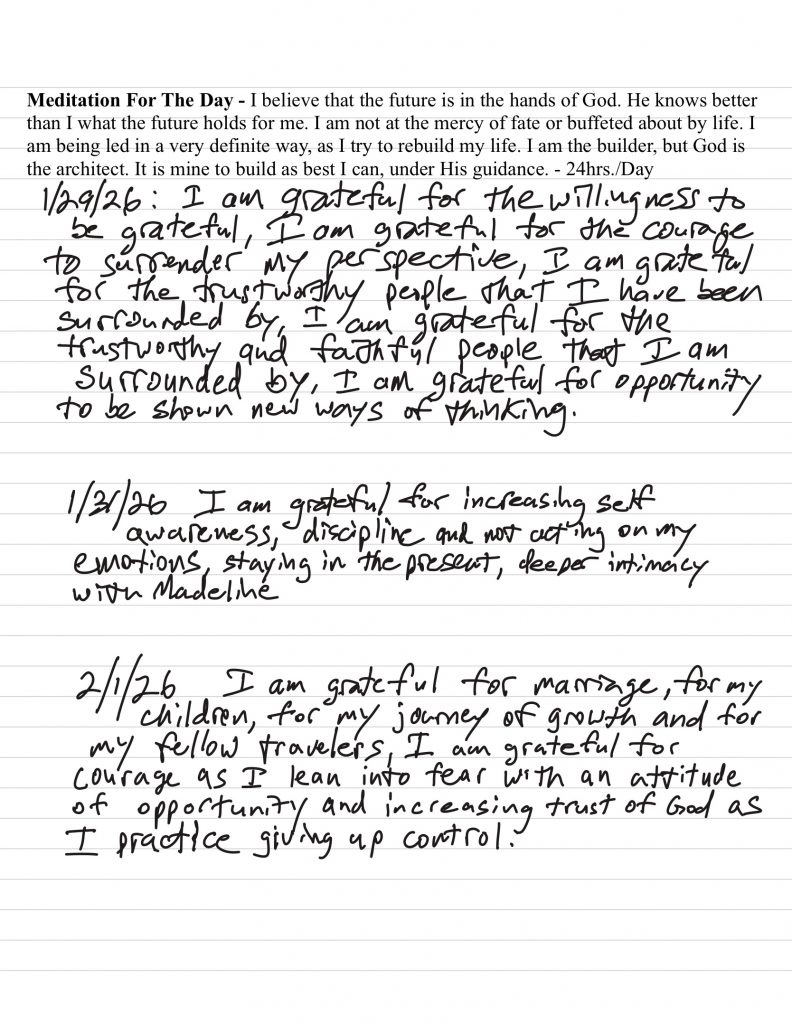 Meditation For The Day - I believe that the future is in the hands of God. He knows better
than I what the future holds for me. I am not at the mercy of fate or buffeted about by life. I
am being led in a very definite way, as I try to rebuild my life. I am the builder, but God is
the architect. It is mine to build as best I can, under His guidance. - 24hrs./Day
1/29/26 : I am grateful for the willingness to
be grateful, I am grateful for the courage
to surrender my perspective, I am grateful
for the trustworthy people that I have been
surrounded by, I am grateful for the
trustworthy and faithful people that I am
surrounded by, I am grateful for opportunity
to be shown new ways of thinking.
1/31/26 I am grateful for increasing self
awareness, discipline and not acting on my
emotions, staying in the present, deeper intimacy
with Madeline
2/1/26 I am grateful for marriage, for my
children, for my journey of growth and for
my fellow travelers, I am grateful for
courage as I lean into fear with an attitude
of opportunity and increasing trust of God as
I practice giving up control.